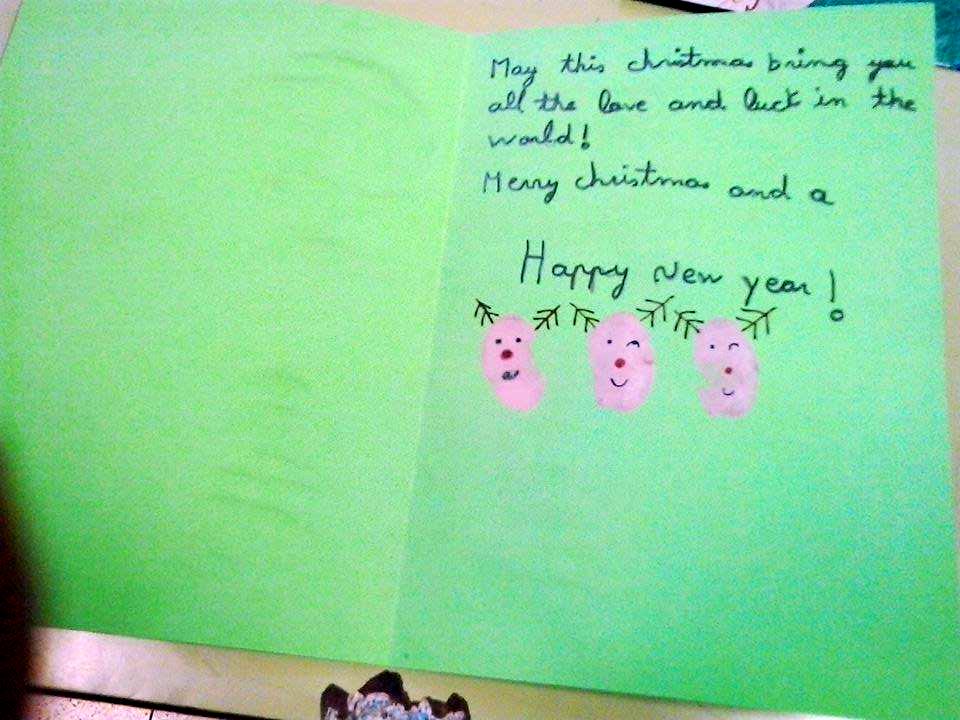 May this christmas bring you
all the love and luck in the
world!
Merry christmas and a
Happy New year!